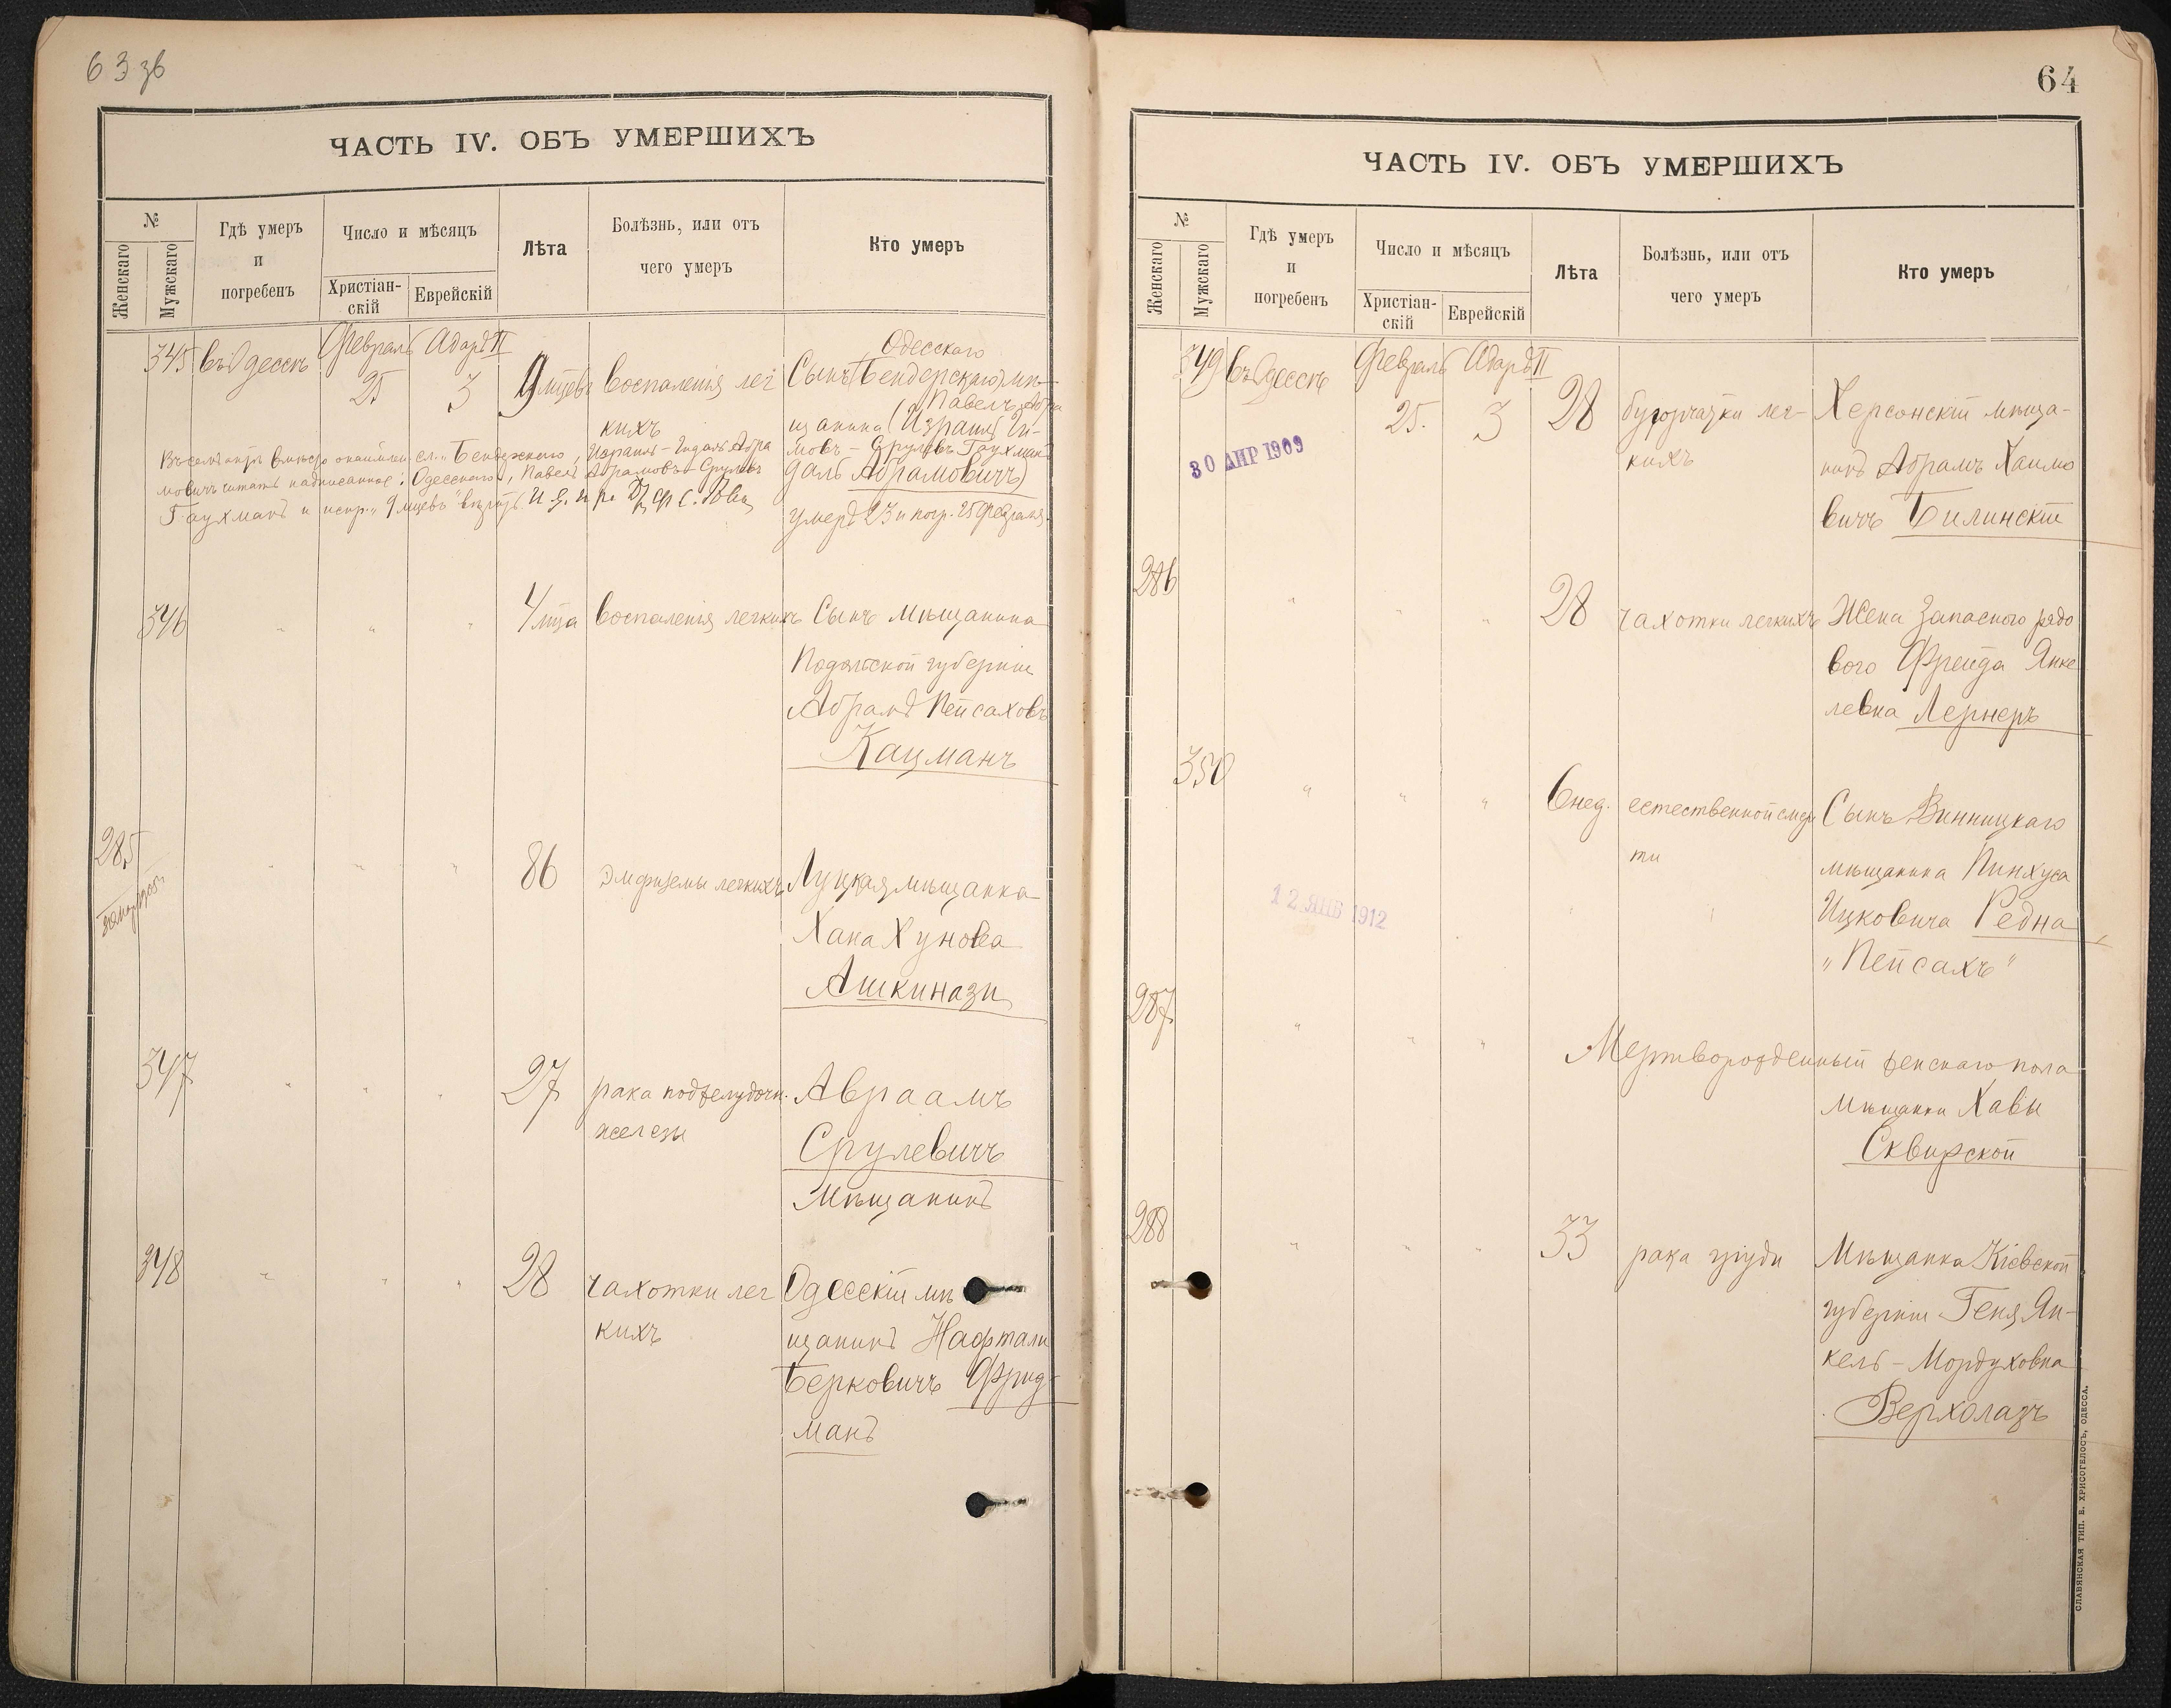 63 зв
ЧАСТЬ IV. ОБЪ УМЕРШИХЪ
№
Женскаго
Мужскаго
Гдѣ умеръ
и
погребенъ
Число и мѣсяцъ
Христіан-
скій
Еврейскій
Лѣта
Болѣзнь, или отъ
чего умеръ
Кто умеръ
345 въ Одессѣ Февраль Адаръ II
25 3 9 мцевъ воспаленія лег
кихъ
Одесскаго
Сынъ (Бендерскаго) мѣ-
Павелъ Абра
щанина (Израиль Ги-
мовъ-Срулевъ Гаухманъ
даль Абрамовичъ)
умеръ 23 и погр. 25 февраля.
Въ сей актѣ вмѣсто сл. "Бендерскаго, Израиль-Гидаль Абра
мовичъ читать надписанное: Одесскаго, Павелъ Абрамовъ-Срулевъ
Гаухманъ и испр. "9 мцевъ" вѣрить.
346 " " " 4 мца воспаленія легкихъ Сынъ мѣщанина
Подольской губерніи
Абрамъ Пейсаховъ
Кацманъ
285 " " " 86 эмфиземы легкихъ Луцкая мѣщанка
Хана Хунова
Ашкинази
347 " " " 27 рака поджелудочн.
железы
Авраамъ
Срулевичъ
Мѣщанинъ
348 " " " 28 чахотки лег
кихъ
Одесскій мѣ
щанинъ Нафтали
Берковичъ Фрид-
манъ
64
ЧАСТЬ IV. ОБЪ УМЕРШИХЪ
№
Женскаго
Мужскаго
Гдѣ умеръ
и
погребенъ
Число и мѣсяцъ
Христіан-
скій
Еврейскій
Лѣта
Болѣзнь, или отъ
чего умеръ
Кто умеръ
349 въ Одессѣ Февраль Адаръ II
25. 3 28 бугорчатки лег-
кихъ
Херсонскій мѣща-
нинъ Абрамъ Хаимо
вичъ Билинскій
30 АПР 1909
286 " " " 28 чахотки легкихъ Жена Запаснаго рядо
вого Фрейда Янке
левна Лернеръ
350 " " " 6 нед. естественной смер
ти
Сынъ Винницкаго
мѣщанина Пинхуса
Ицковича Редна
"Пейсахъ"
12 ЯНВ 1912
287 " " " Мертворожденный женскаго пола
Мѣщанки Хавы
Сквирской
288 " " " 33 рака груди Мѣщанка Кіевской
губерніи Геня Ян-
кель-Мордуховна
Верхолазъ
СЛАВЯНСКАЯ ТИП. Е. ХРИСОГЕЛОСЪ, ОДЕССА.